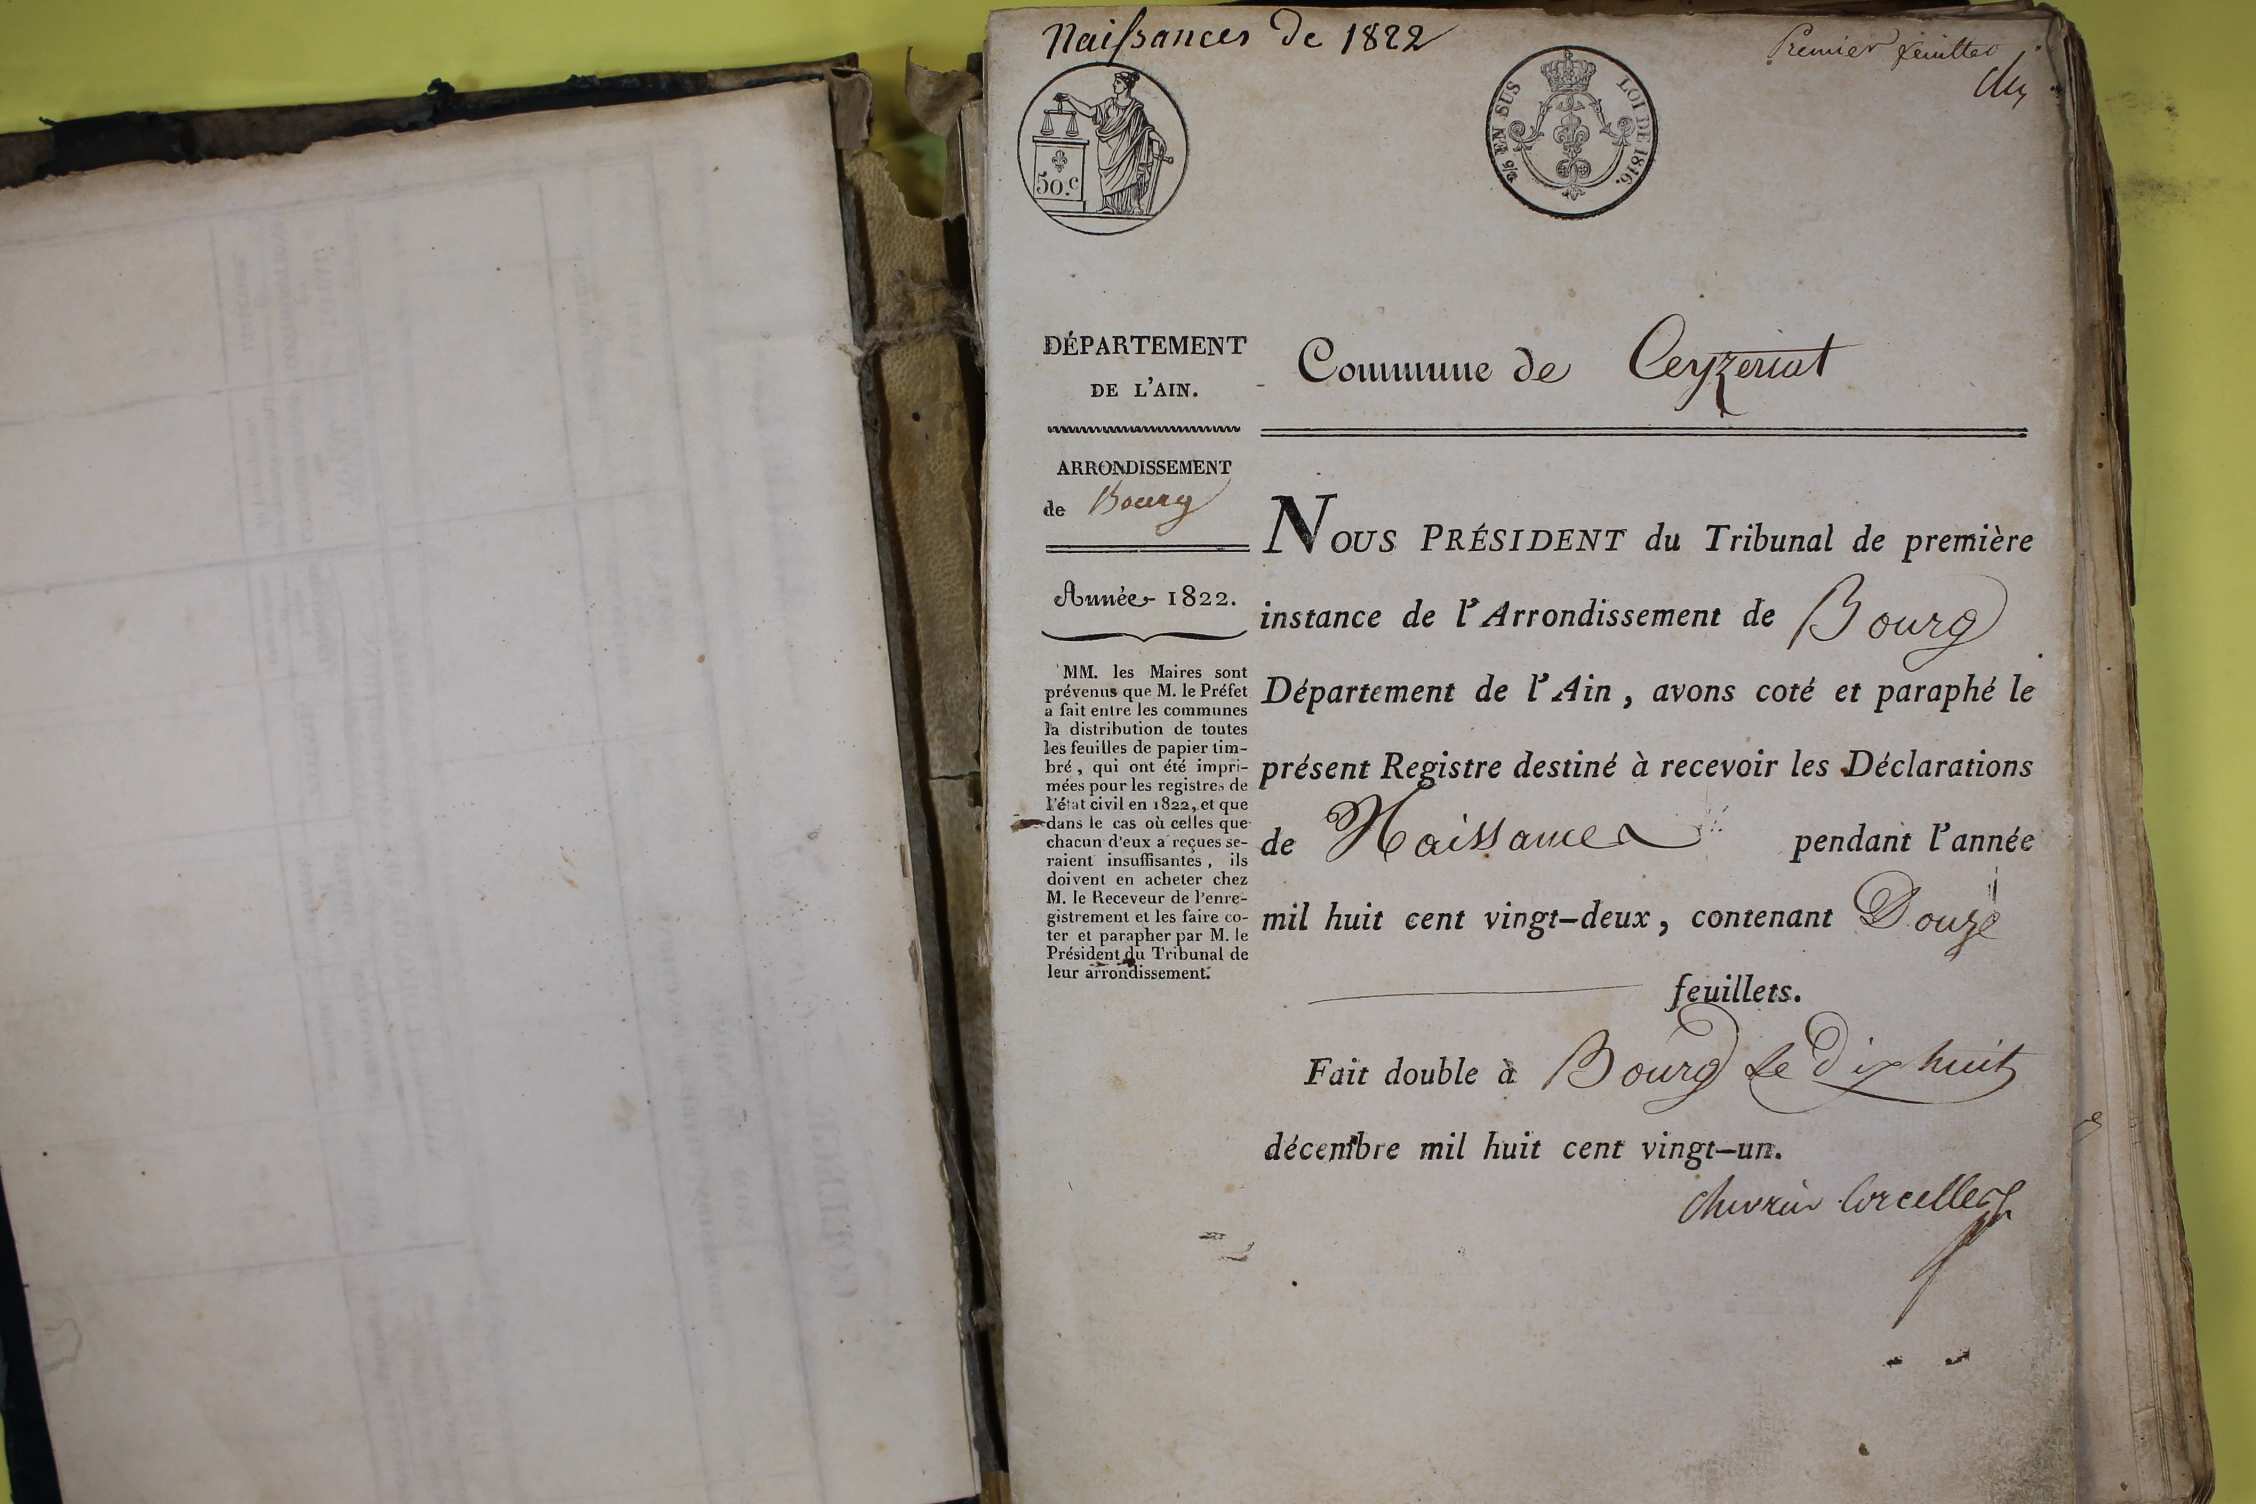 Naissances de 1822
Premier feuillet
50.c
EN SUS
LOI DE 1816.
DÉPARTEMENT
DE L'AIN.
ARRONDISSEMENT
de Bourg
Année 1822.
MM. les Maires sont
prévenus que M. le Préfet
a fait entre les communes
la distribution de toutes
les feuilles de papier tim-
bré, qui ont été impri-
mées pour les registres de
l'état civil en 1822, et que
dans le cas où celles que
chacun d'eux a reçues se-
raient insuffisantes, ils
doivent en acheter chez
M. le Receveur de l'enre-
gistrement et les faire co-
ter et parapher par M. le
Président du Tribunal de
leur arrondissement.
Commune de Ceyzeriat
NOUS PRÉSIDENT du Tribunal de première
instance de l'Arrondissement de Bourg
Département de l'Ain, avons coté et paraphé le
présent Registre destiné à recevoir les Déclarations
de Naissances pendant l'année
mil huit cent vingt-deux, contenant Douze
feuillets.
Fait double à Bourg le dix huit
décembre mil huit cent vingt-un.
Chevrier Corcelles